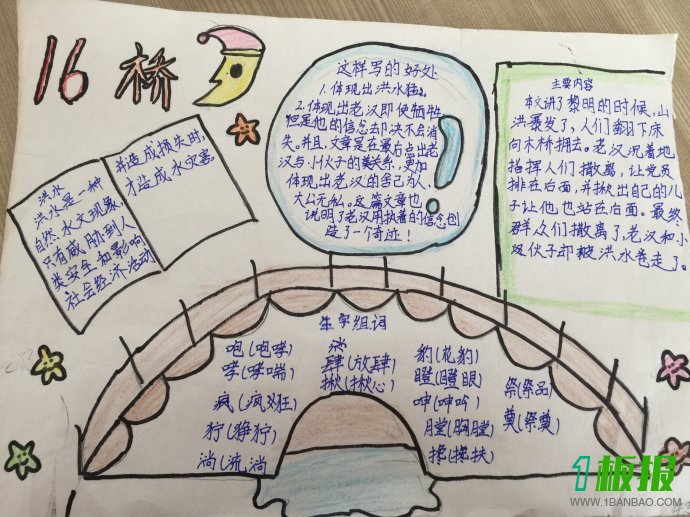 16 桥
洪水
洪水是一种
自然水文现象,
只有威胁到人
类安全和影响
社会经济活动
并造成损失时,
才造成水灾害。
这样写的好处
1.体现出洪水猛。
2.体现出老汉即使牺牲
但是他的信念却决不会消
失。并且,文章是在最后点出老
汉与小伙子的关系,更加
体现出老汉的舍己为人、
大公无私。这篇文章也
说明了老汉用执着的信念创
造了一个奇迹!
主要内容
本文讲了黎明的时候,山
洪暴发了,人们翻下床
向木桥拥去。老汉沉着地
指挥人们撤离,让党员
排在后面,并揪出自己的儿
子让他也站在后面。最终
群众们撤离了,老汉和小
伙子却被洪水卷走了。
生字组词
咆(咆哮)
哮(哮喘)
疯(疯狂)
狞(狰狞)
淌(流淌)
肆(放肆)
揪(揪心)
豹(花豹)
瞪(瞪眼)
呻(呻吟)
膛(胸膛)
搀(搀扶)
祭(祭品)
奠(祭奠)
1板报
WWW.1BANBAO.COM